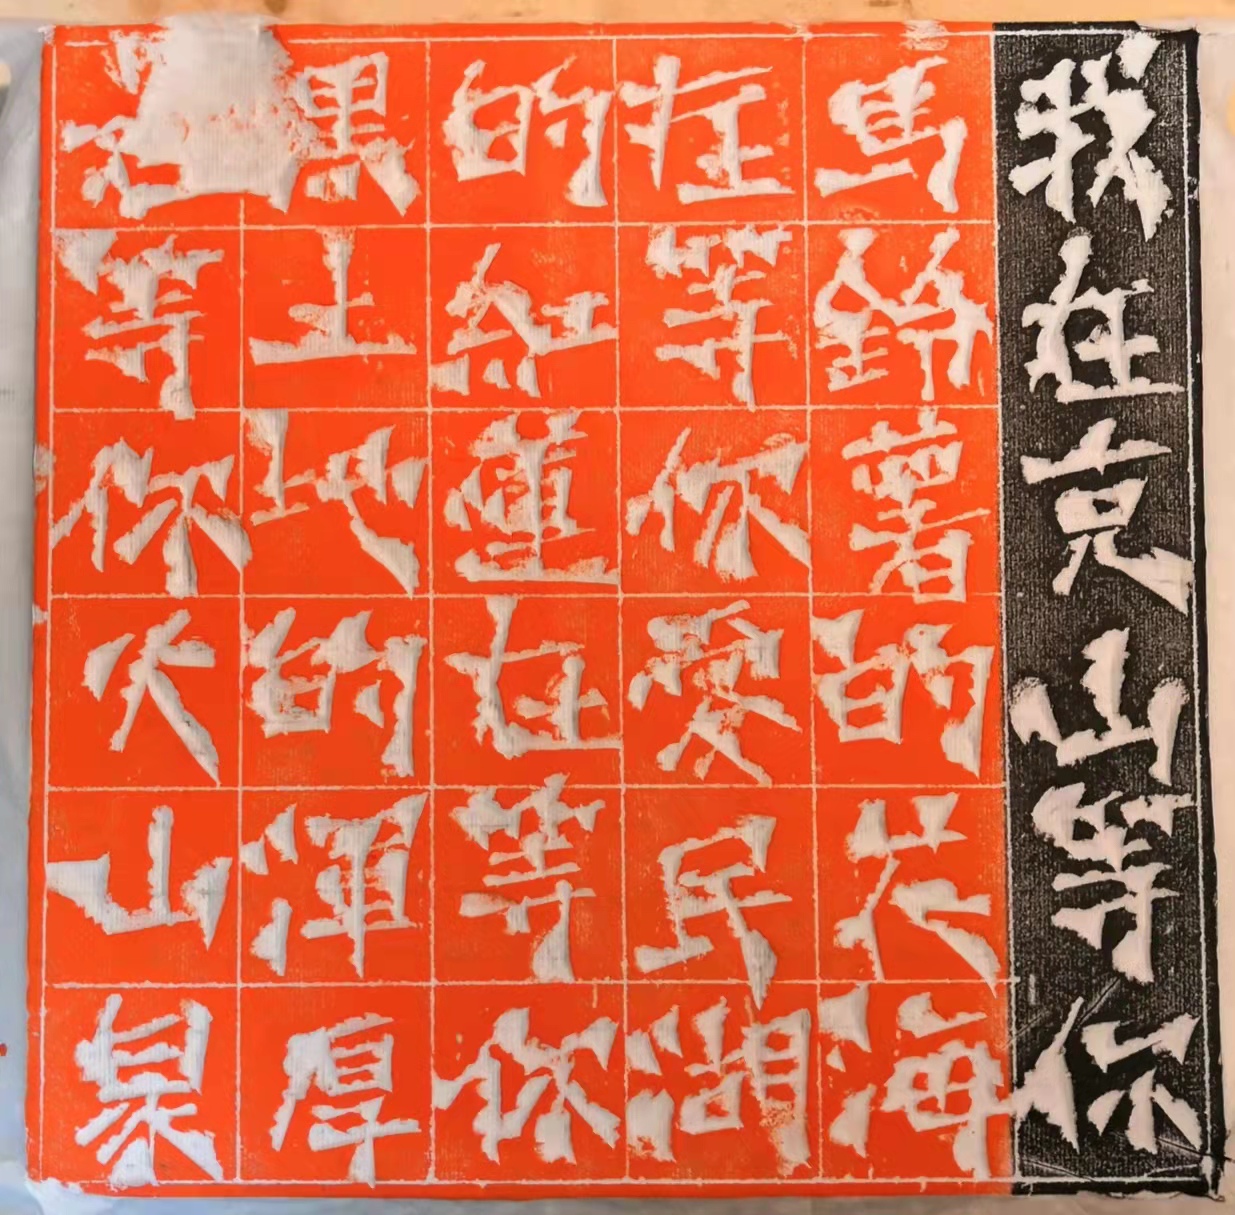 我在克山等你
馬鈴薯的花海
在等你愛民湖
的紅蓮在等你
黑土地的渾厚
等你火山泉